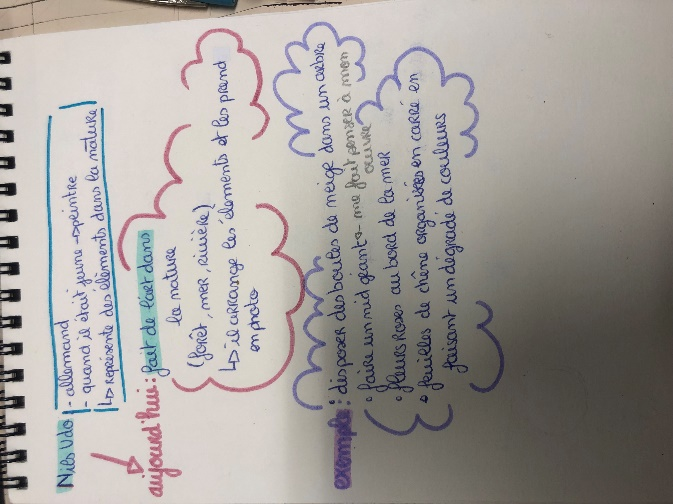 Nils Udo - allemand
- quand il était jeune → peintre
↳ représente des éléments dans la nature
aujourd'hui : fait de l'art dans
la nature
(forêt, mer, rivière)
↳ il arrange les éléments et les prend
en photo
exemple : disposer des boules de neige dans un arbre
• faire un nid géant → me fait penser à mon
œuvre
• fleurs roses au bord de la mer
• feuilles de chêne organisées en carré en
faisant un dégradé de couleurs